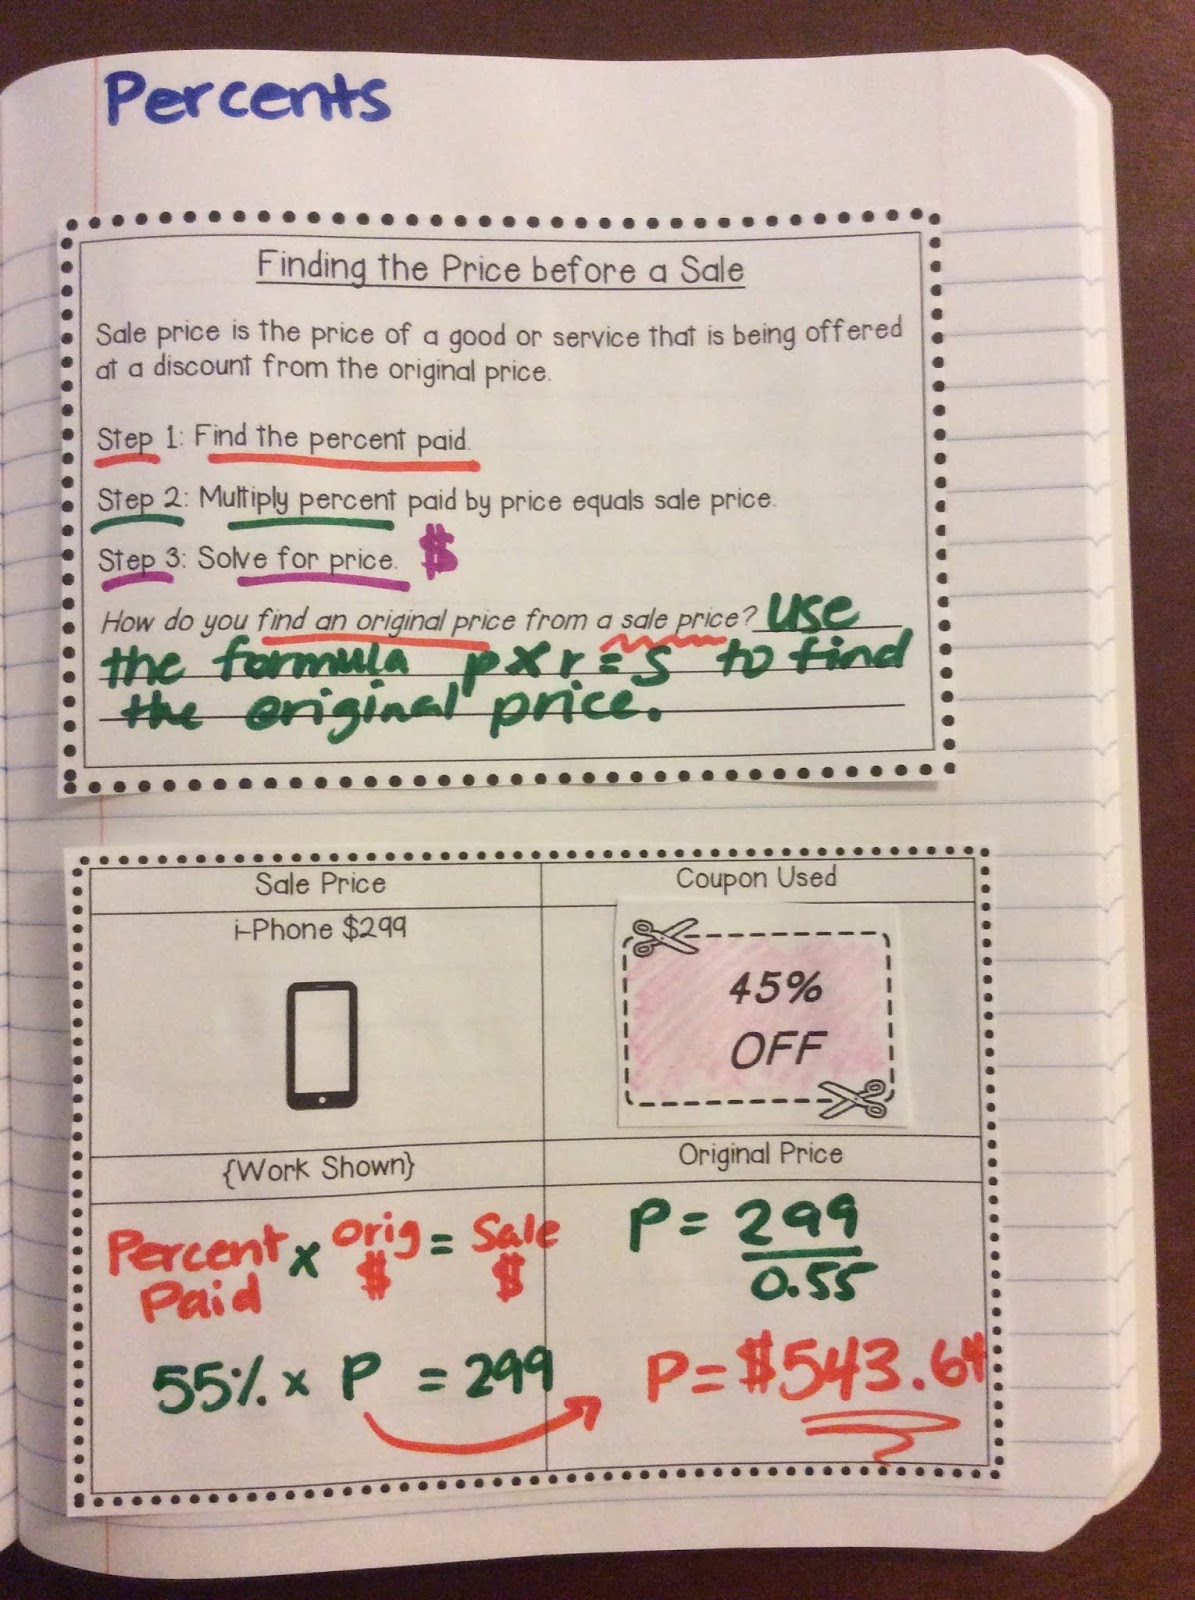 Percents
Finding the Price before a Sale
Sale price is the price of a good or service that is being offered
at a discount from the original price.
Step 1: Find the percent paid.
Step 2: Multiply percent paid by price equals sale price.
Step 3: Solve for price. $
How do you find an original price from a sale price? Use
the formula p x r = s to find
the original price.
Sale Price
Coupon Used
i-Phone $299
45%
OFF
{Work Shown}
Original Price
Percent Paid x Orig $ = Sale $
55% x P = 299
P = 299
0.55
P = $543.64